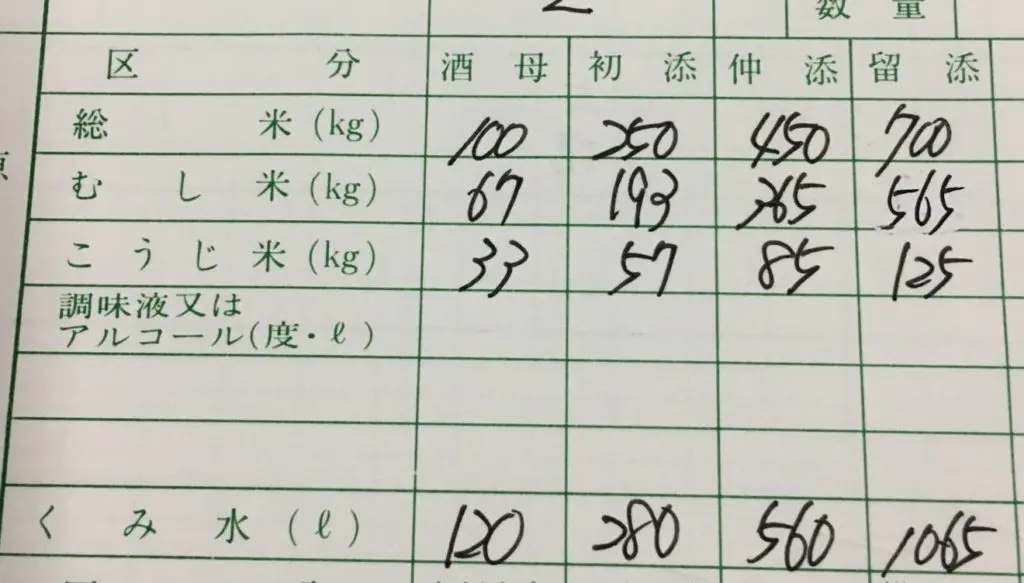 数 量
区 分 酒 母 初 添 仲 添 留 添
総 米 (kg) 100 250 450 700
む し 米 (kg) 67 193 365 565
こ う じ 米 (kg) 33 57 85 125
調味液又は
アルコール(度・ℓ)
く み 水 (ℓ) 120 280 560 1065